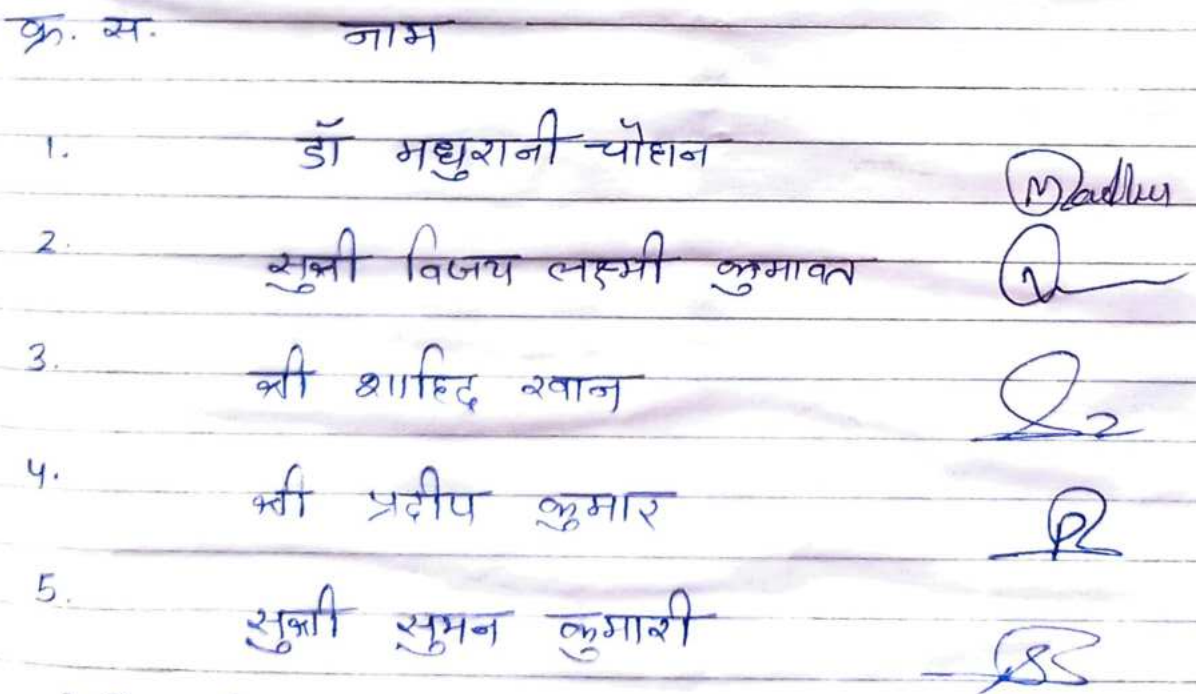 क्र. स. नाम
1. डॉ मधुरानी चौहान Madhu
2. सुश्री विजय लक्ष्मी कुमावत
3. श्री शाहिद खान
4. श्री प्रदीप कुमार
5. सुश्री सुमन कुमारी